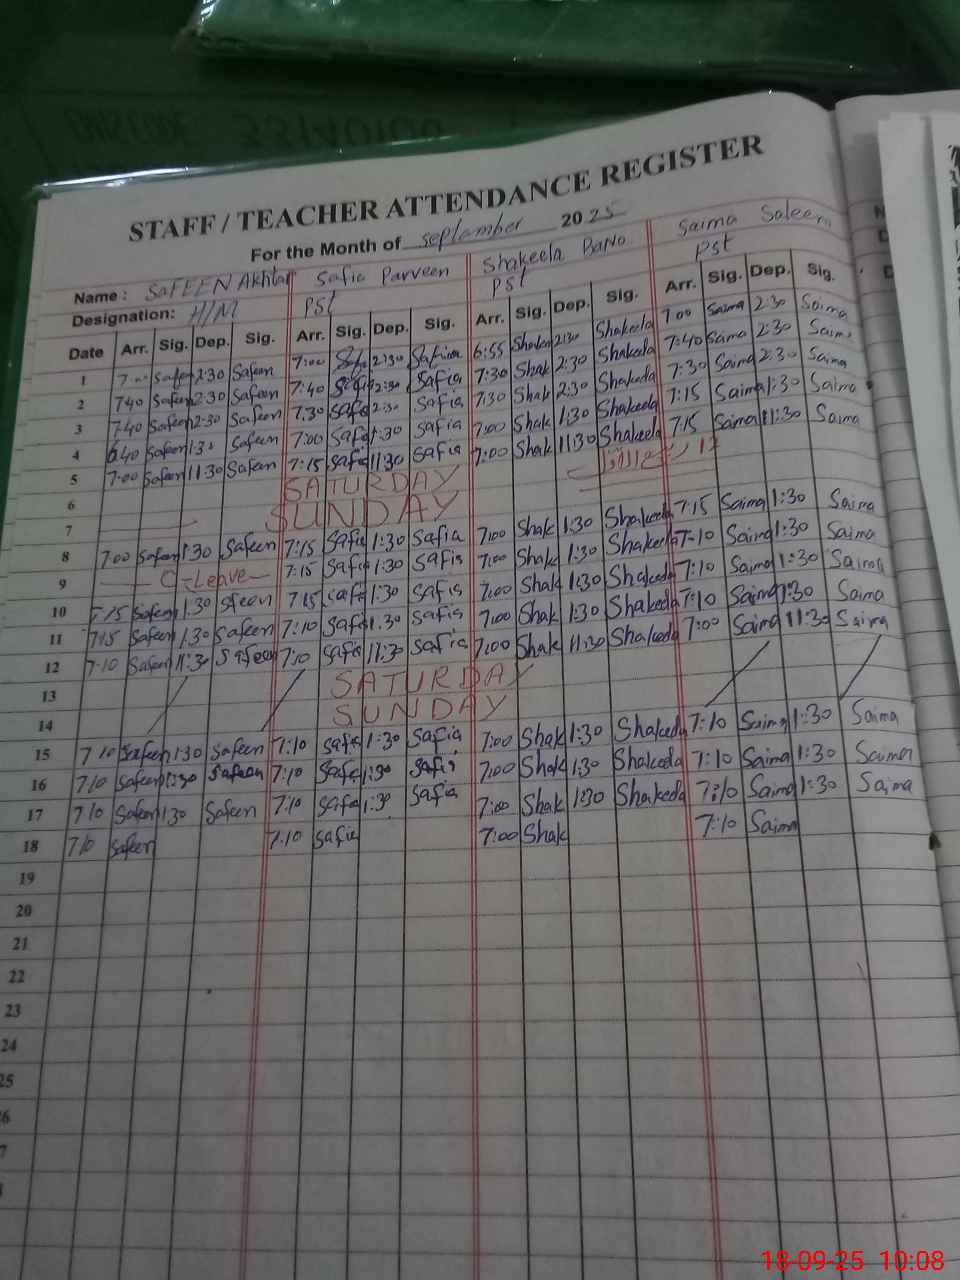 STAFF / TEACHER ATTENDANCE REGISTER
For the Month of September 2025
Name : SaFEEN Akhtar Safia Parveen Shakeela BaNo Saima Saleem
Designation: H/M PST PST PST
Date Arr. Sig. Dep. Sig. Arr. Sig. Dep. Sig. Arr. Sig. Dep. Sig. Arr. Sig. Dep. Sig.
1 Safeen 2:30 Safeen 7:00 2:30 Safia 6:55 Shakeela 2:30 Shakeela 7:00 Saima 2:30 Saima
2 7:40 Safeen 2:30 Safeen 7:40 Safia 2:30 Safia 7:30 Shak 2:30 Shakeela 7:40 Saima 2:30 Saima
3 7:40 Safeen 2:30 Safeen 7:30 Safia 2:30 Safia 7:30 Shak 2:30 Shakeela 7:30 Saima 2:30 Saima
4 6:40 Safeen 1:30 Safeen 7:00 Safia 1:30 Safia 7:00 Shak 1:30 Shakeela 7:15 Saima 1:30 Saima
5 7:00 Safeen 11:30 Safeen 7:15 Safia 11:30 Safia 7:00 Shak 11:30 Shakeela 7:15 Saima 11:30 Saima
6 SATURDAY
7 SUNDAY
8 7:00 Safeen 1:30 Safeen 7:15 Safia 1:30 Safia 7:00 Shak 1:30 Shakeela 7:15 Saima 1:30 Saima
9 C-Leave 7:15 Safia 1:30 Safia 7:00 Shak 1:30 Shakeela 7:10 Saima 1:30 Saima
10 7:15 Safeen 1:30 Sfeen 7:15 Safia 1:30 Safia 7:00 Shak 1:30 Shakeela 7:10 Saima 1:30 Saima
11 7:15 Safeen 1:30 Safeen 7:10 Safia 1:30 Safia 7:00 Shak 1:30 Shakeela 7:10 Saima 1:30 Saima
12 7:10 Safeen 11:30 Safeen 7:10 Safia 11:30 Safia 7:00 Shak 11:30 Shakeela 7:00 Saima 11:30 Saima
13 SATURDAY
14 SUNDAY
15 7:10 Safeen 1:30 Safeen 7:10 Safia 1:30 Safia 7:00 Shak 1:30 Shakeela 7:10 Saima 1:30 Saima
16 7:10 Safeen 1:30 Safeen 7:10 Safia 1:30 Safia 7:00 Shak 1:30 Shakeela 7:10 Saima 1:30 Saima
17 7:10 Safeen 1:30 Safeen 7:10 Safia 1:30 Safia 7:00 Shak 1:30 Shakeela 7:10 Saima 1:30 Saima
18 7:10 Safeen 7:10 Safia 7:00 Shak 7:10 Saima
19
20
21
22
23
24
25
6
7
18-09-25 10:08